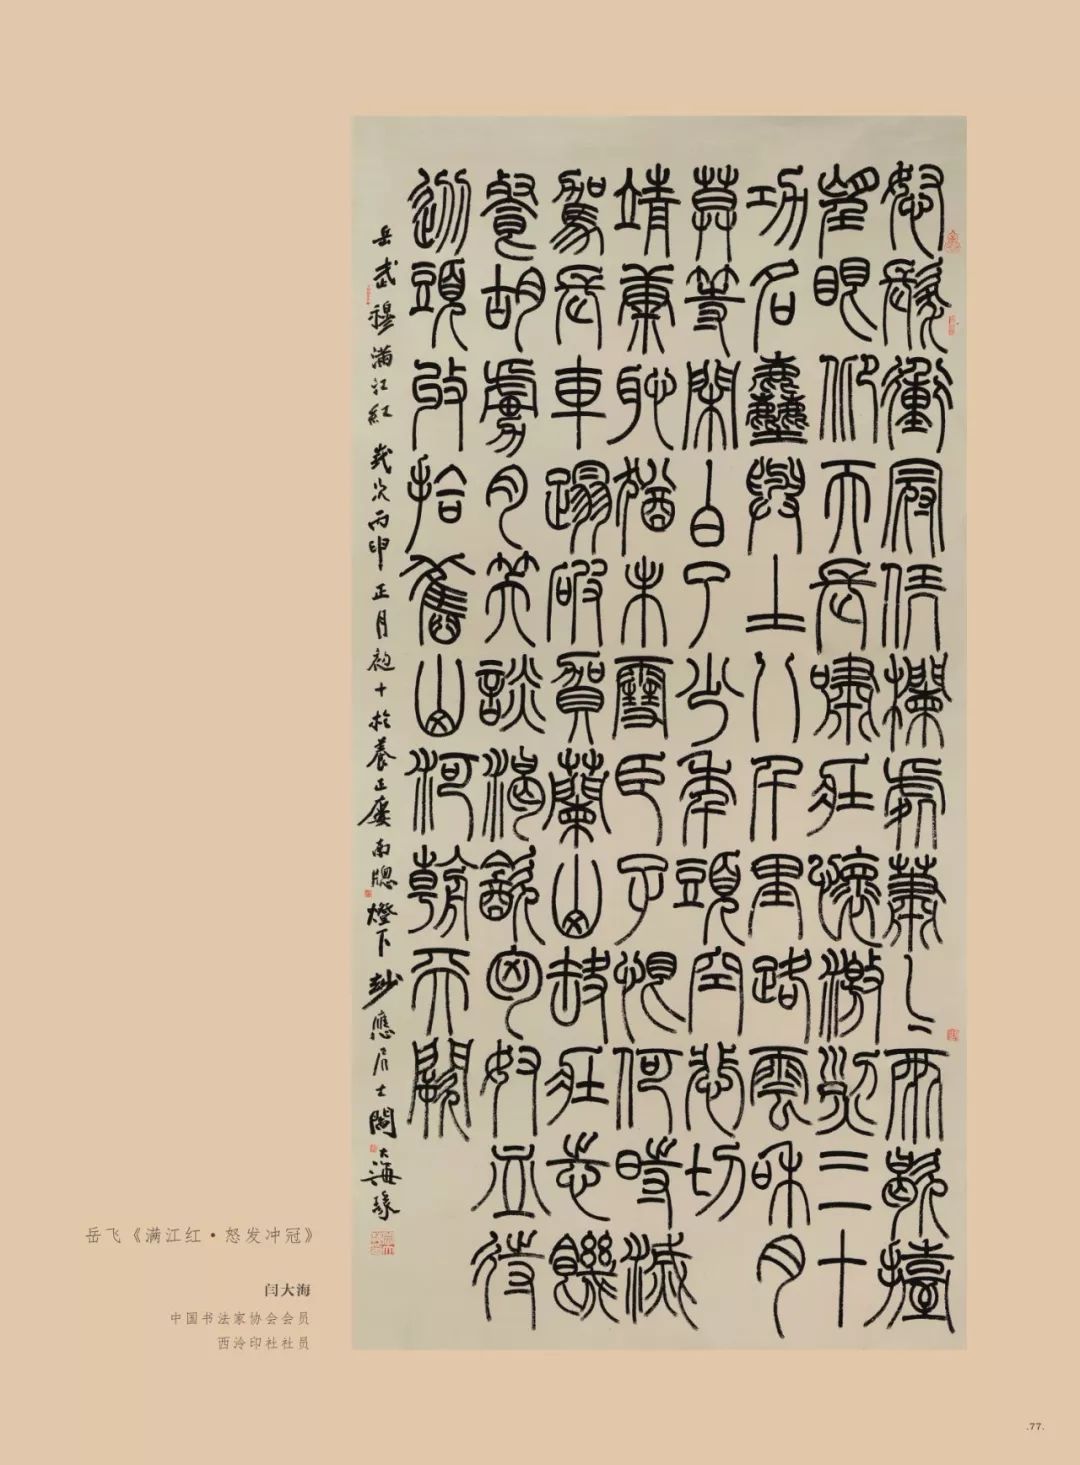 怒髮衝冠凭欄處蕭〻雨歇擡
望眼仰天長嘯壯懷激烈三十
功名塵與土八千里路雲和月
莫等閑白了少年頭空悲切
靖康恥猶未雪臣子恨何時滅
駕長車踏破賀蘭山缺壯志饑
餐胡虜肉笑談渴飲匈奴血待
從頭收拾舊山河朝天闕
岳武穆滿江紅歲次丙申正月初十於養正廬南牕燈下妙應居士閻大海篆
岳飞《满江红·怒发冲冠》
闫大海
中国书法家协会会员
西泠印社社员
.77.